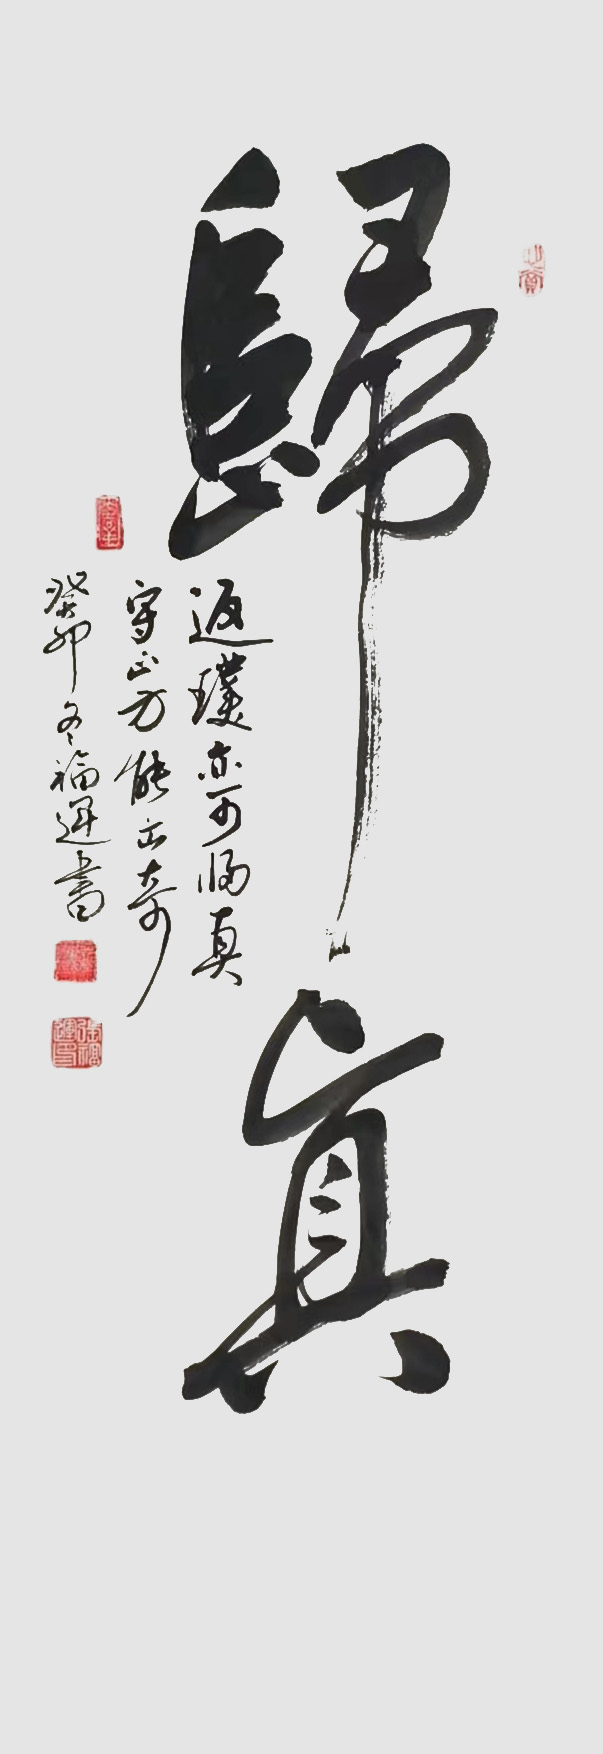 歸真
返璞亦可歸真
守正方能出奇
癸卯冬福運書
張福運印